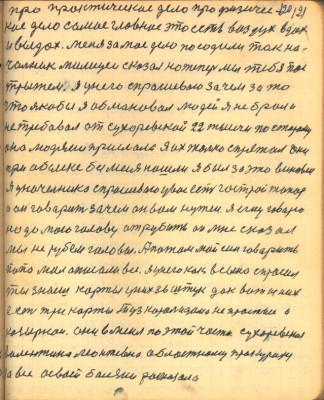 про практическое дело про физичес 120/91
кое дело самое главное это есть воздух вдох
и выдох. меня за мое дело посодили так на-
чальник милиции сказал но теперь мы тебя пос
я у него спрашиваю зачем за то
что я кобы я обмановал людей я не брал и
не требовал от сухоревской 22 тысячи по старому
она людями прислала я их только спрятал они
при обыске бы меня нашли я был за это виновен
я у начальника спрашиваю у вас есть гострой топор
а он говарит зачем он вам нужен. я ему говарю
надо мою голову отрубить он мне сказал
мы не рубем головы. А потом мой син говарить
я у него как всыно спросил
ты знаеш карты у них 36 штук дак вот у них
есть три карты Туз король дама не простые а
козырные. они в меня по этой части сухоревская
валентина леонтевна областному прокурору
а все освоей болезни росказала